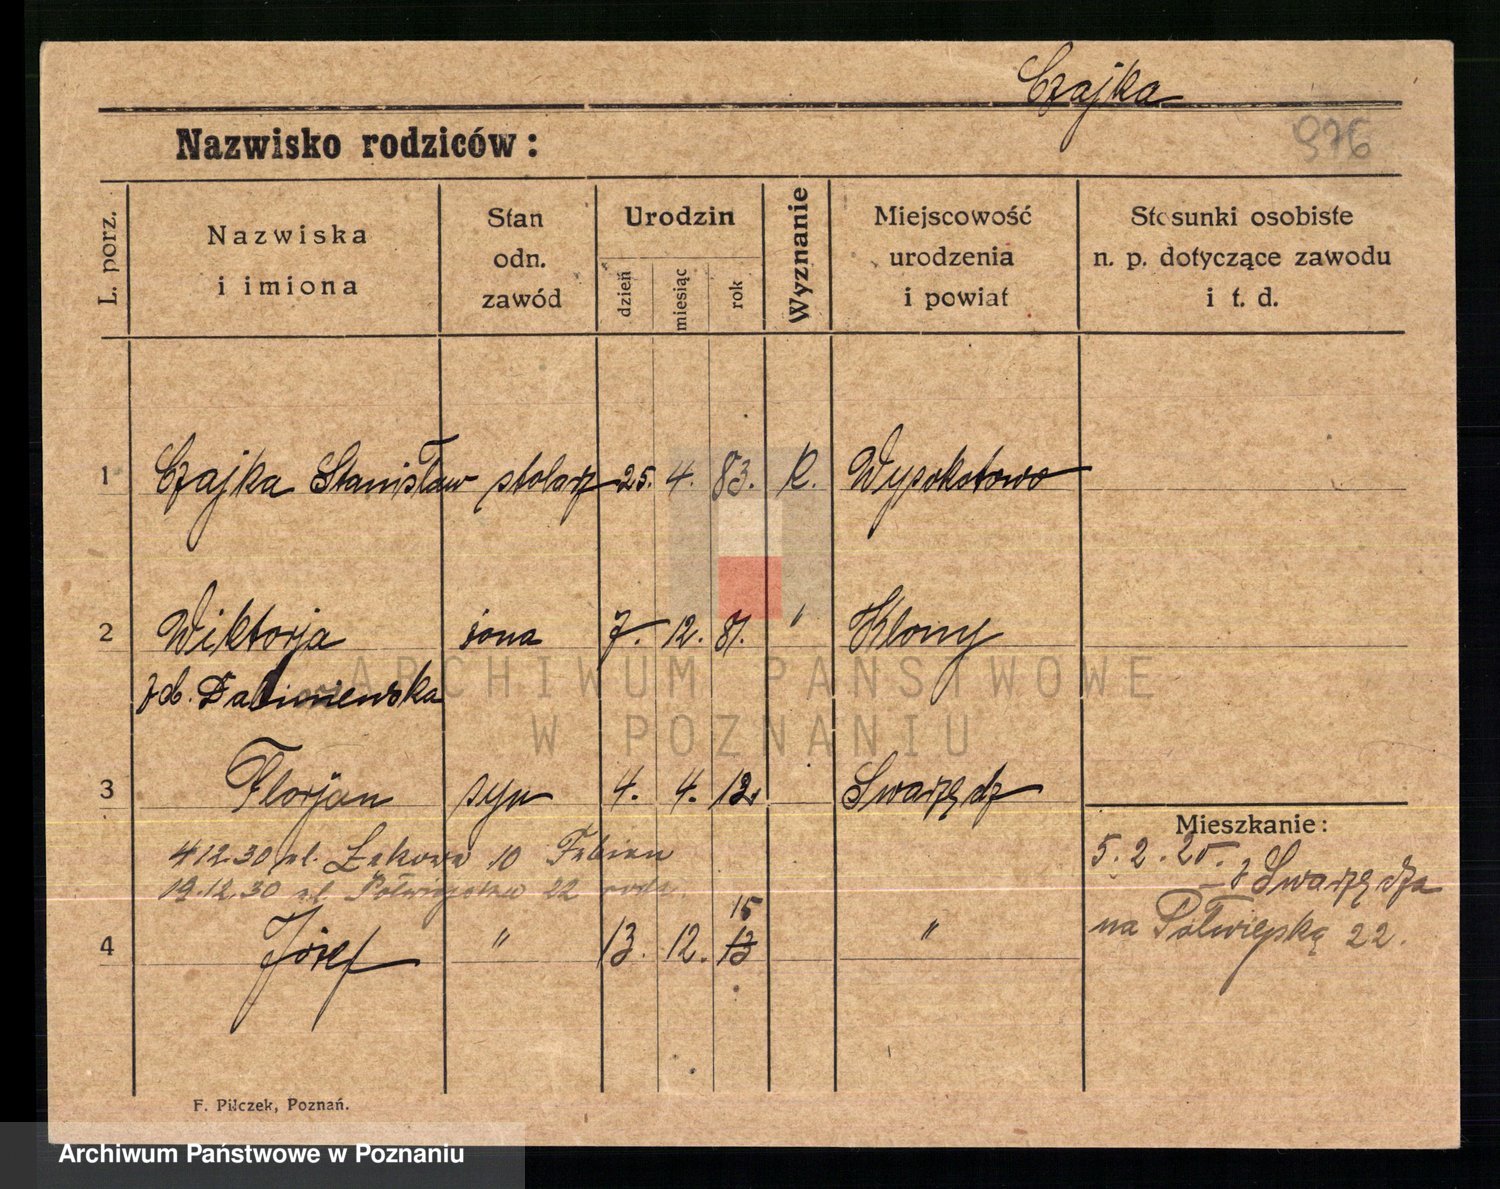 Czajka
Nazwisko rodziców:
976
L. porz.
Nazwiska
i imiona
Stan
odn.
zawód
Urodzin
dzień
miesiąc
rok
Wyznanie
Miejscowość
urodzenia
i powiat
Stosunki osobiste
n. p. dotyczące zawodu
i t. d.
1 Czajka Stanisław stolarz 25. 4. 83. K.
2 Wiktorja żona 7. 12. 81. " Klony
ARCHIWUM PAŃSTWOWE
W POZNANIU
3 Florjan syn 4. 4. 12. Swarzędz
Mieszkanie:
4.12.30 ul. Łąkowa 10 Fabian
19.12.30 ul. Półwiejska 22
5. 2. 25. z Swarzędza
na Półwiejską 22.
15
4 Józef " 13. 12. 13 "
F. Pilczek, Poznań.
Archiwum Państwowe w Poznaniu